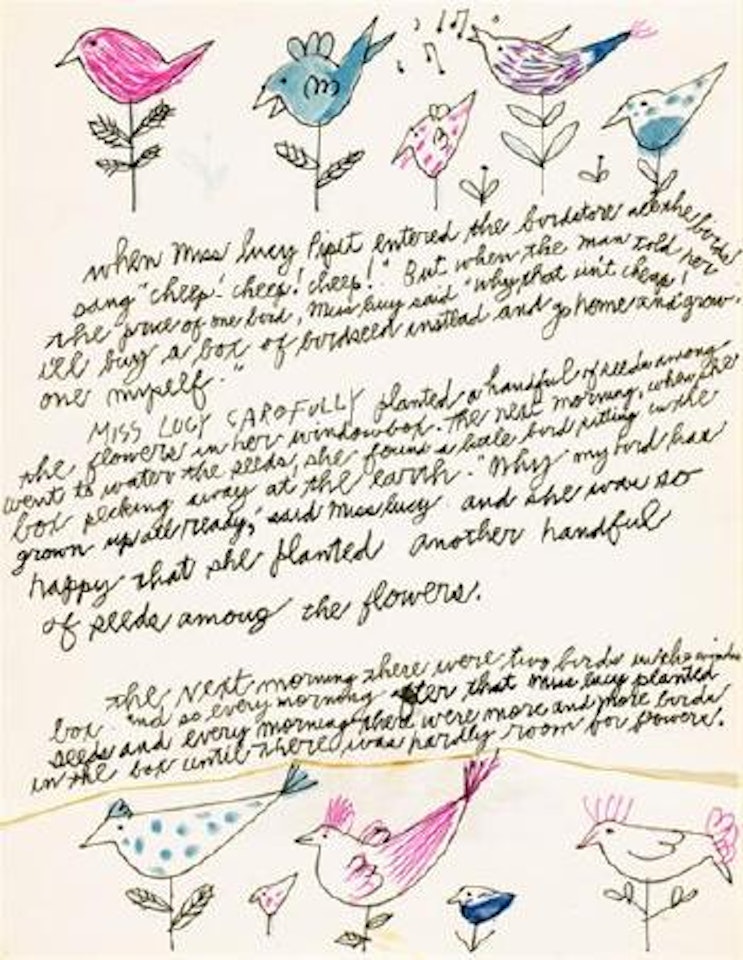 when Miss Lucy Pipit entered the birdstore all the birds
sang "cheep! cheep! cheep!" But when the man told her
the price of one bird, Miss Lucy said "why that isn't cheap!
i'll buy a box of birdseed instead and go home and grow
one myself."
MISS LUCY CAROFULLY planted a handful of seeds among
the flowers in her windowbox. the next morning, when she
went to water the seeds, she found a little bird sitting in the
box pecking away at the earth. "Why my bird has
grown up all ready," said Miss Lucy. and she was so
happy that she planted another handful
of seeds among the flowers.
the next morning there were two birds in the window
box and so every morning after that Miss Lucy planted
seeds and every morning there were more and more birds
in the box until there was hardly room for flowers.